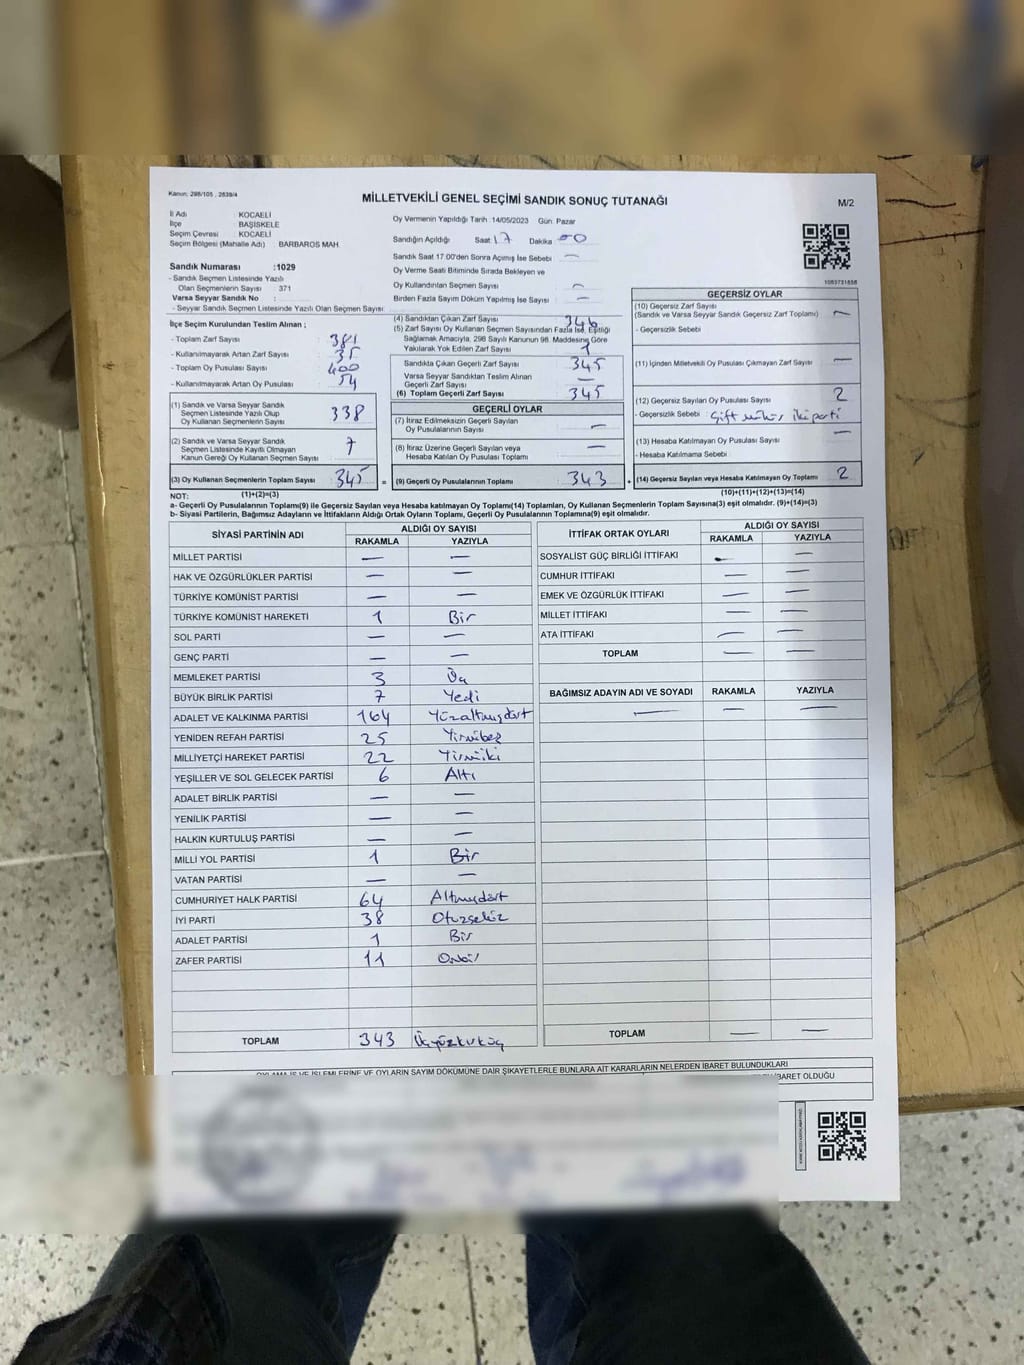 Kanun: 298/105 , 2839/4
MİLLETVEKİLİ GENEL SEÇİMİ SANDIK SONUÇ TUTANAĞI
M/2
İl Adı : KOCAELİ
İlçe : BAŞİSKELE
Seçim Çevresi : KOCAELİ
Seçim Bölgesi (Mahalle Adı) : BARBAROS MAH.
Sandık Numarası :1029
- Sandık Seçmen Listesinde Yazılı
Olan Seçmenlerin Sayısı : 371
Varsa Seyyar Sandık No :
- Seyyar Sandık Seçmen Listesinde Yazılı Olan Seçmen Sayısı:
Oy Vermenin Yapıldığı Tarih :14/05/2023 Gün: Pazar
Sandığın Açıldığı Saat 17 Dakika 00
Sandık Saat 17:00'den Sonra Açımış İse Sebebi —
Oy Verme Saati Bitiminde Sırada Bekleyen ve
Oy Kullandırılan Seçmen Sayısı —
Birden Fazla Sayım Döküm Yapılmış İse Sayısı —
1083731858
İlçe Seçim Kurulundan Teslim Alınan ;
- Toplam Zarf Sayısı 381
- Kullanılmayarak Artan Zarf Sayısı 35
- Toplam Oy Pusulası Sayısı 400
- Kullanılmayarak Artan Oy Pusulası 54
(1) Sandık ve Varsa Seyyar Sandık
Seçmen Listesinde Yazılı Olup
Oy Kullanan Seçmenlerin Sayısı 338
(2) Sandık ve Varsa Seyyar Sandık
Seçmen Listesinde Kayıtlı Olmayan
Kanun Gereği Oy Kullanan Seçmen Sayısı 7
(3) Oy Kullanan Seçmenlerin Toplam Sayısı 345 =
(4) Sandıktan Çıkan Zarf Sayısı 346
(5) Zarf Sayısı Oy Kullanan Seçmen Sayısından Fazla İse, Eşitliği
Sağlamak Amacıyla, 298 Sayılı Kanunun 98. Maddesine Göre
Yakılarak Yok Edilen Zarf Sayısı 1
Sandıkta Çıkan Geçerli Zarf Sayısı 345
Varsa Seyyar Sandıktan Teslim Alınan
Geçerli Zarf Sayısı —
(6) Toplam Geçerli Zarf Sayısı 345
GEÇERLİ OYLAR
(7) İtiraz Edilmeksizin Geçerli Sayılan
Oy Pusulalarının Sayısı —
(8) İtiraz Üzerine Geçerli Sayılan veya
Hesaba Katılan Oy Pusulası Toplamı —
(9) Geçerli Oy Pusulalarının Toplamı 343 +
GEÇERSİZ OYLAR
(10) Geçersiz Zarf Sayısı
(Sandık ve Varsa Seyyar Sandık Geçersiz Zarf Toplamı) —
- Geçersizlik Sebebi
(11) İçinden Milletvekili Oy Pusulası Çıkmayan Zarf Sayısı —
(12) Geçersiz Sayılan Oy Pusulası Sayısı 2
- Geçersizlik Sebebi : Çift mühür iki parti
(13) Hesaba Katılmayan Oy Pusulası Sayısı —
- Hesaba Katılmama Sebebi :
(14) Geçersiz Sayılan veya Hesaba Katılmayan Oy Toplamı 2
NOT: (1)+(2)=(3) (10)+(11)+(12)+(13)=(14)
a- Geçerli Oy Pusulalarının Toplamı(9) ile Geçersiz Sayılan veya Hesaba Katılmayan Oy Toplamı(14) Toplamları, Oy Kullanan Seçmenlerin Toplam Sayısına(3) eşit olmalıdır. (9)+(14)=(3)
b- Siyasi Partilerin, Bağımsız Adayların ve İttifakların Aldığı Ortak Oyların Toplamı, Geçerli Oy Pusulalarının Toplamına(9) eşit olmalıdır.
SİYASİ PARTİNİN ADI ALDIĞI OY SAYISI
RAKAMLA YAZIYLA
MİLLET PARTİSİ — —
HAK VE ÖZGÜRLÜKLER PARTİSİ — —
TÜRKİYE KOMÜNİST PARTİSİ — —
TÜRKİYE KOMÜNİST HAREKETİ 1 Bir
SOL PARTİ — —
GENÇ PARTİ — —
MEMLEKET PARTİSİ 3 Üç
BÜYÜK BİRLİK PARTİSİ 7 Yedi
ADALET VE KALKINMA PARTİSİ 164 Yüzaltmışdört
YENİDEN REFAH PARTİSİ 25 Yirmibeş
MİLLİYETÇİ HAREKET PARTİSİ 22 Yirmiiki
YEŞİLLER VE SOL GELECEK PARTİSİ 6 Altı
ADALET BİRLİK PARTİSİ — —
YENİLİK PARTİSİ — —
HALKIN KURTULUŞ PARTİSİ — —
MİLLİ YOL PARTİSİ 1 Bir
VATAN PARTİSİ — —
CUMHURİYET HALK PARTİSİ 64 Altmışdört
İYİ PARTİ 38 Otuzsekiz
ADALET PARTİSİ 1 Bir
ZAFER PARTİSİ 11 Onbir
TOPLAM 343 Üçyüzkırküç
İTTİFAK ORTAK OYLARI ALDIĞI OY SAYISI
RAKAMLA YAZIYLA
SOSYALİST GÜÇ BİRLİĞİ İTTİFAKI — —
CUMHUR İTTİFAKI — —
EMEK VE ÖZGÜRLÜK İTTİFAKI — —
MİLLET İTTİFAKI — —
ATA İTTİFAKI — —
TOPLAM — —
BAĞIMSIZ ADAYIN ADI VE SOYADI RAKAMLA YAZIYLA
— — —
TOPLAM — —
OYLAMA İŞ VE İŞLEMLERİNE VE OYLARIN SAYIM DÖKÜMÜNE DAİR ŞİKAYETLERLE BUNLARA AİT KARARLARIN NELERDEN İBARET BULUNDUKLARI
İBARET OLDUĞU